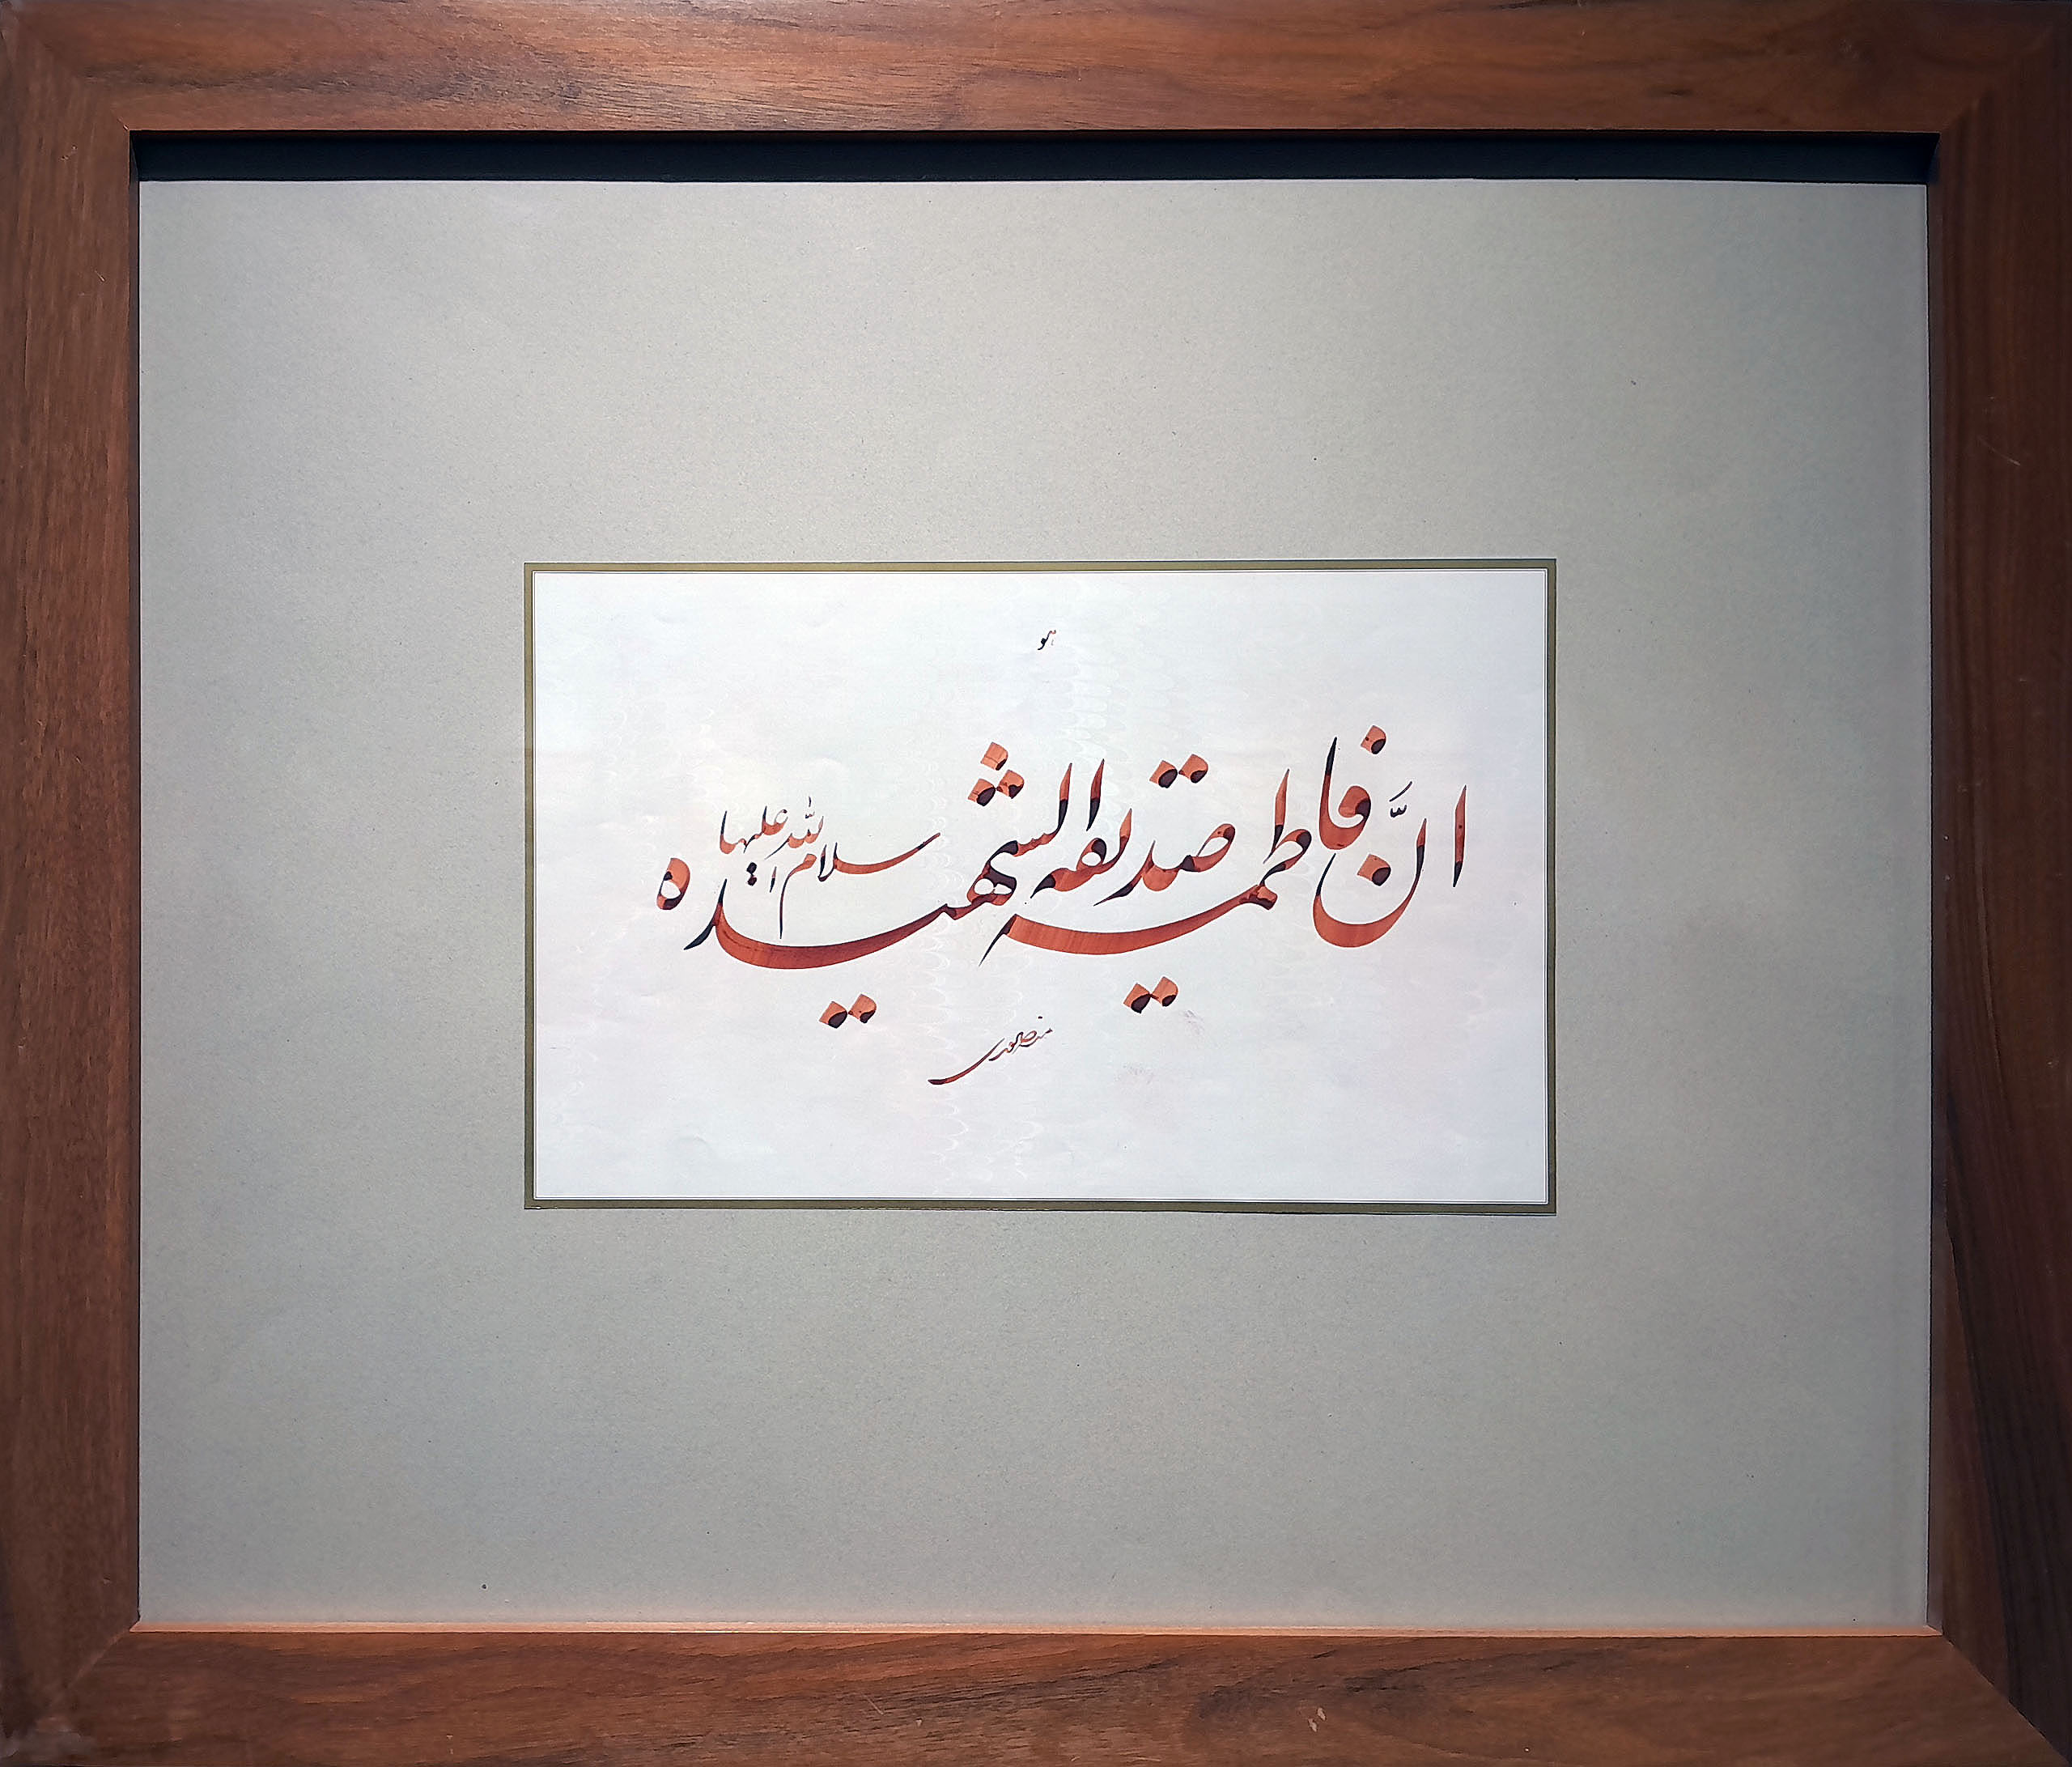 هو
انَّ فاطمیه صدیقه الشهیده سلام الله علیها
منصوری